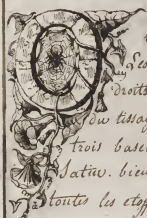 Les
droits
du tissag
trois base
Sative. bien
toutes les etoff